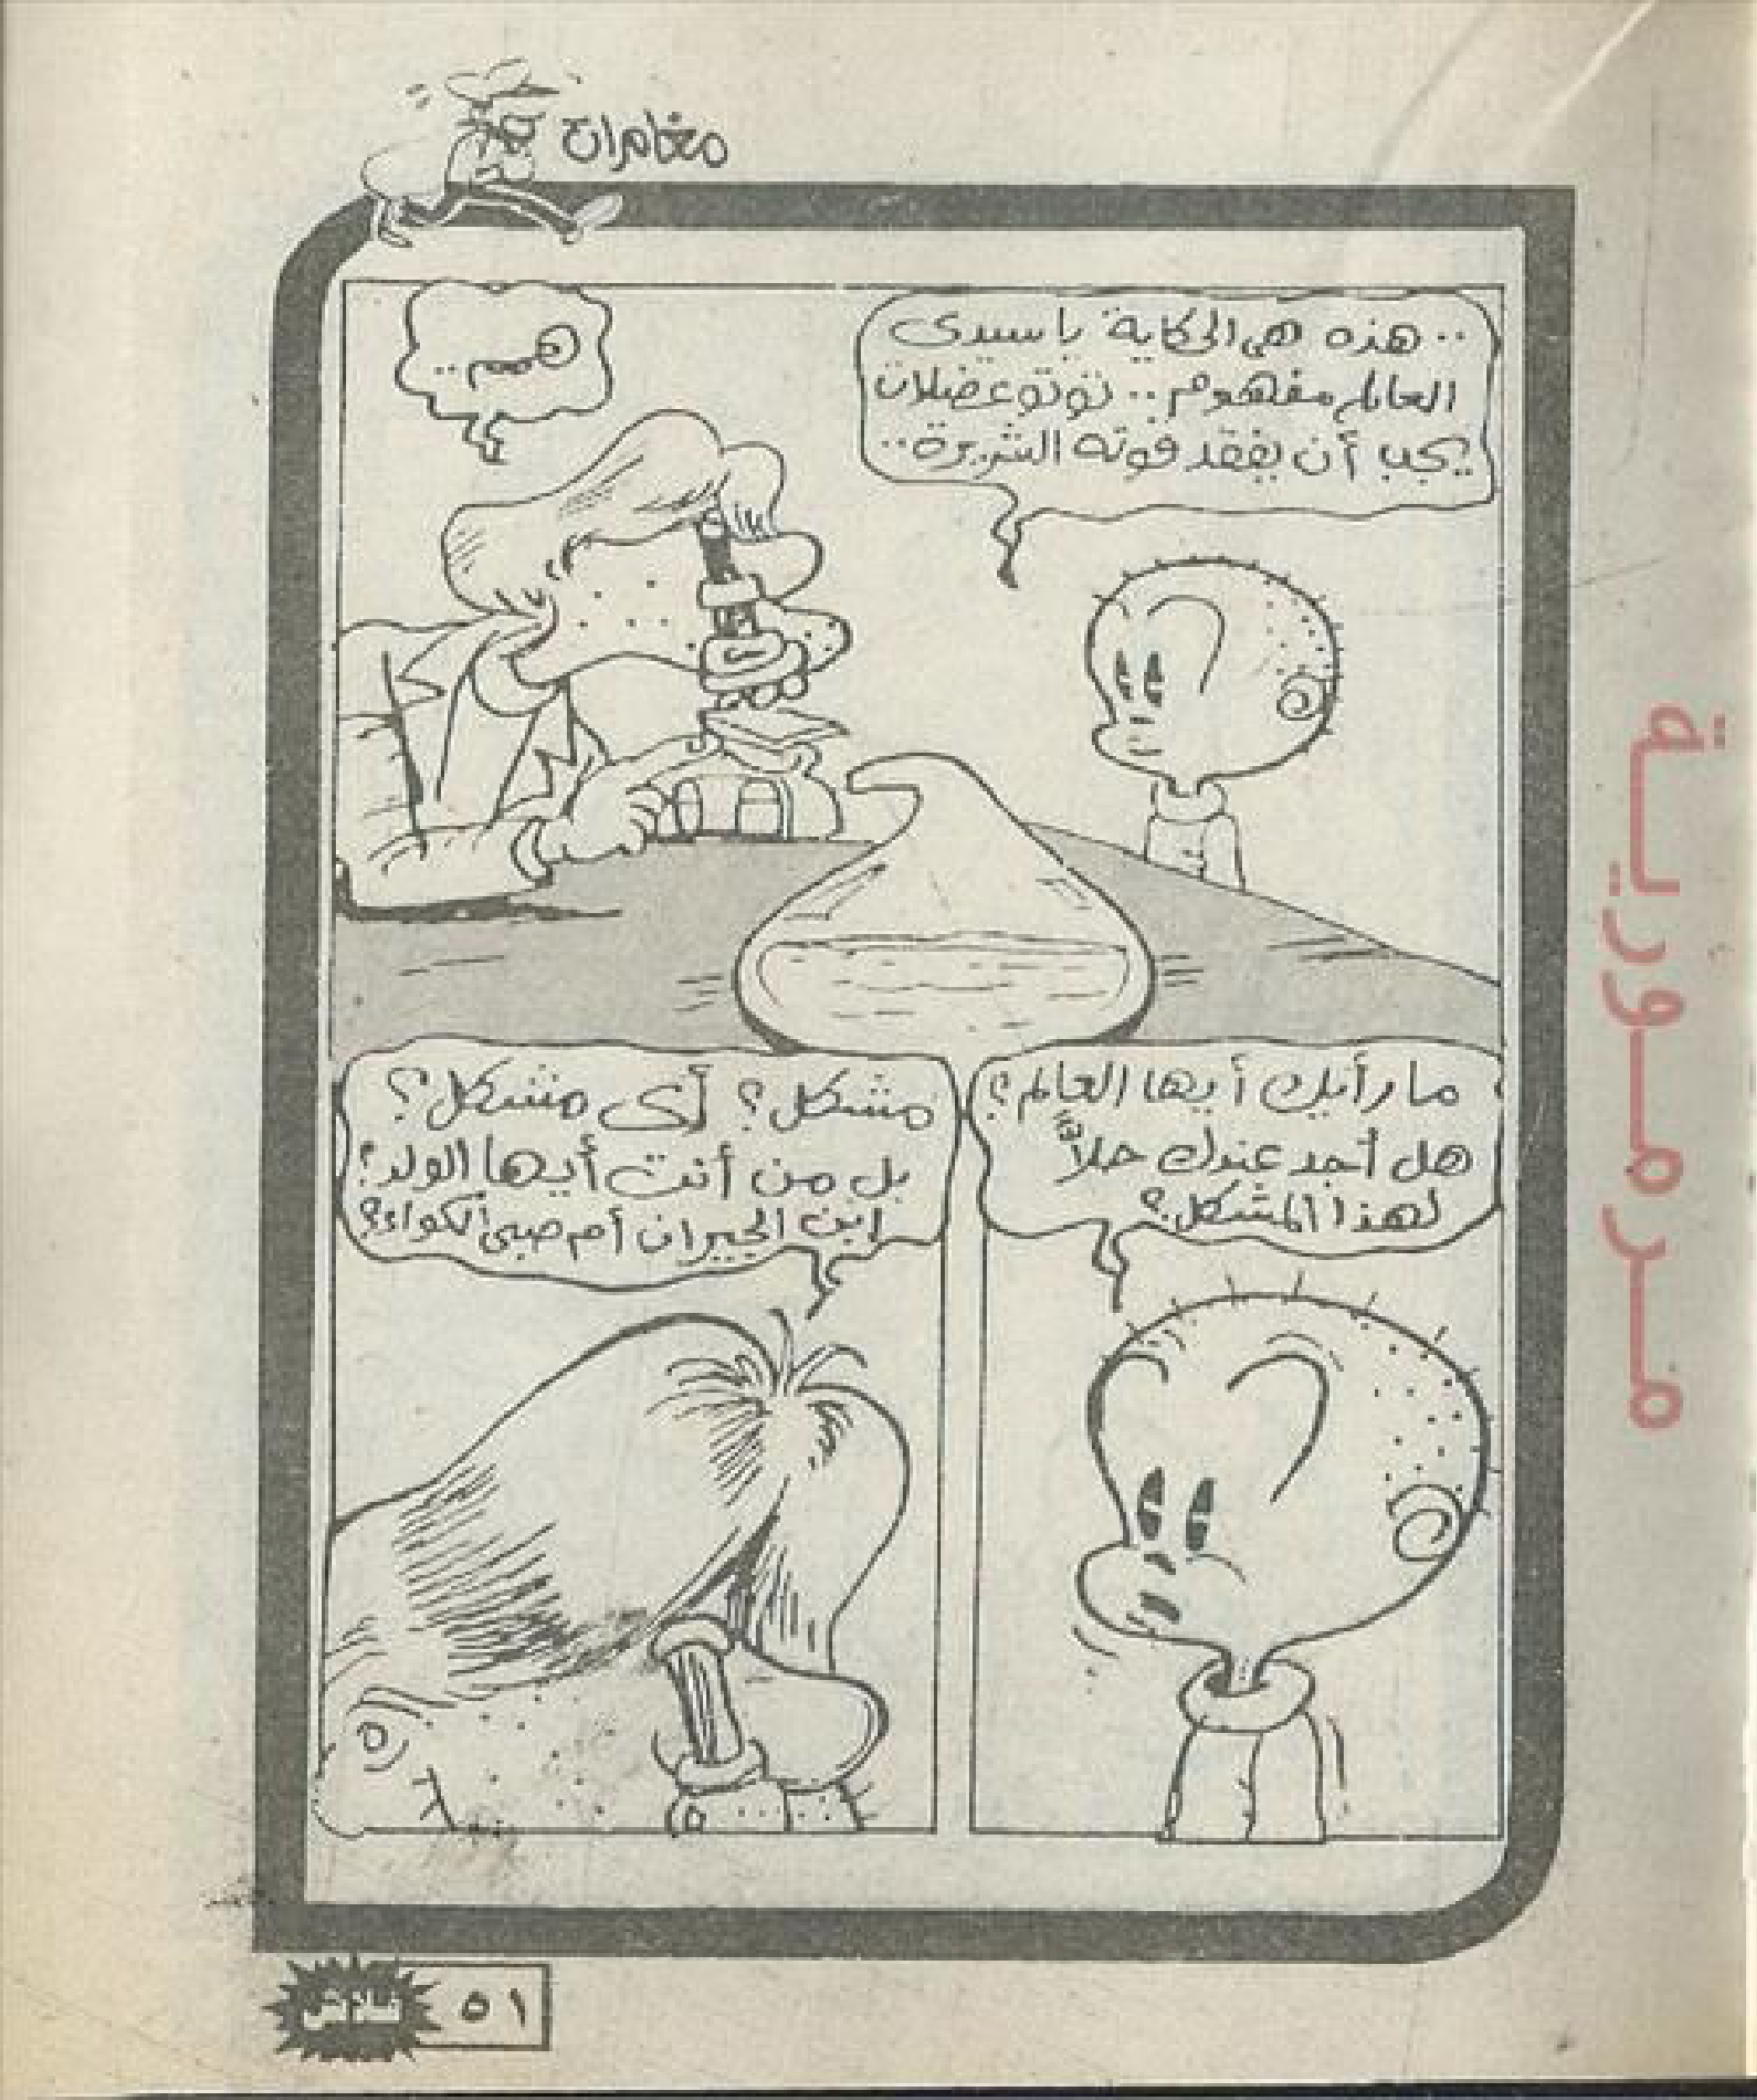 مغامرات
.. هذه هى الحكاية يا سيدى
العالم مفهوم .. توتو عضلات
يجب أن يفقد قوته الشريرة ..
همم ..
ما رأيك أيها العالم؟
هل أجد عندك حلاًّ
لهذا المشكل؟
مشكل؟ أى مشكل؟
بل من أنت أيها الولد؟
ابن الجيران أم صبى الكواء؟
مرمورية
٥١
فلاش